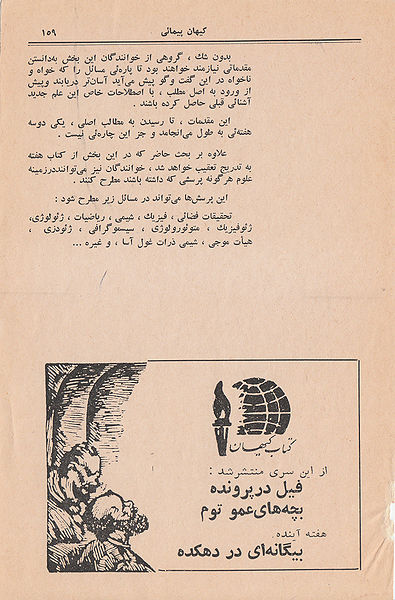 کیهان پیمائی
۱۵۹
بدون شك ، گروهی از خوانندگان این بخش به‌دانستن
مقدماتی نیازمند خواهند بود تا پاره‌ئی مسائل را که خواه و
ناخواه در این گفت وگو پیش می‌آید آسان‌تر دریابند وپیش
از ورود به اصل مطلب ، با اصطلاحات خاص این علم جدید
آشنائی قبلی حاصل کرده باشند .
این مقدمات ، تا رسیدن به مطالب اصلی ، یکی دوسه
هفته‌ئی به طول می‌انجامد و جز این چاره‌ئی نیست .
علاوه بر بحث حاضر که در این بخش از کتاب هفته
به تدریج تعقیب خواهد شد ، خوانندگان نیز می‌تواننددرزمینه
علوم هرگونه پرسشی که داشته باشند مطرح کنند .
این پرسش‌ها می‌تواند در مسائل زیر مطرح شود :
تحقیقات فضائی ، فیزیك ، شیمی ، ریاضیات ، ژئولوژی،
ژئوفیزیك ، متئورولوژی ، سیسموگرافی ، ژئودزی ،
هیأت موجی ، شیمی ذرات غول آسا ، و غیره ...
کتاب کیهان
از این سری منتشرشد :
فیل درپرونده
بچه‌های عمو توم
هفته آینده
بیگانه‌ای در دهکده